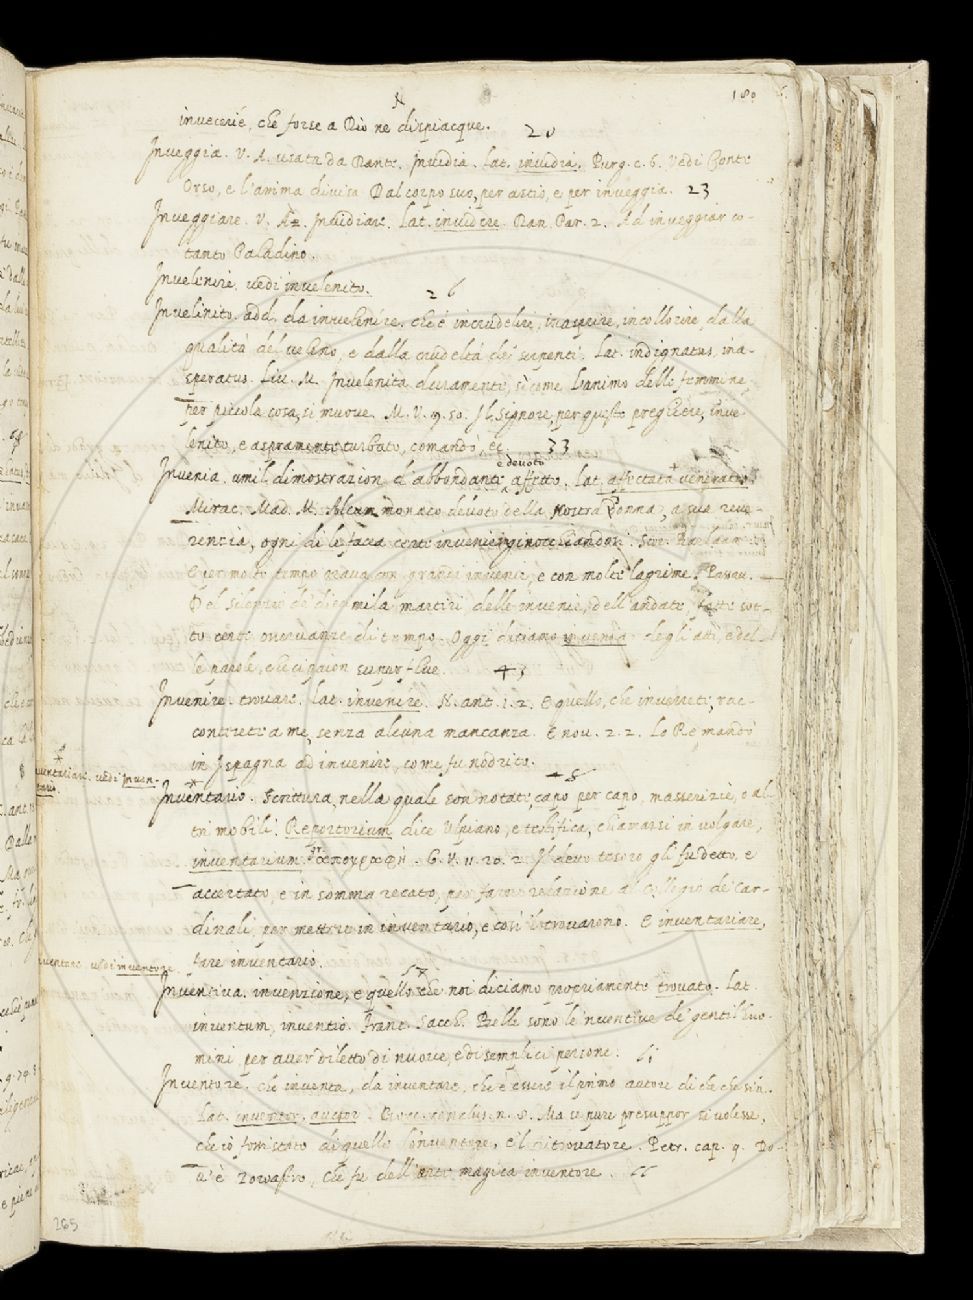 180
invecerie, che forse a Dio ne dispiacque.
20
Inveggia. V. A. usata da Dante. Invidia. Lat. invidia. Purg. c. 6. Vedi Conte
Orso, e l'anima divisa Dal corpo suo, per astio, e per inveggia. 23
Inveggiare. V. A. Invidiare. Lat. invidere. Dan. Par. 2. Ad inveggiar co-
tanto Paladino.
Invelenire. vedi invelenito.
26
Invelenito. add. da invelenire. che è incrudelire, inasprire, incollorire, dalla
qualità del veleno, e dalla crudeltà de' serpenti. Lat. indignatus, ina-
speratus. Liv. M. Invelenita duramente, sì come l'animo delle femmine,
per piccola cosa, si muove. M. V. 9. 50. Il Signore, per questo preghiere, inve-
lenito, e aspramente turbato, comandò, ec. 33
e devoto
Invenia. umil dimostrazion d'abbondante affetto. Lat. affectata veneratio.
Mirac. Mad. M. Alcun monaco devoto della Nostra Donna, a sua reve-
rencia, ogni dì le facea certe invenie, ginocchiandosi.
E per molto tempo orava con grandi invenie, e con molte lagrime. Passav.
Del scoprire de' diecimila martiri delle invenie, dell'andate, fatte sot-
to certe osservanze di tempo. Oggi diciamo invenia degli atti, e del-
le parole, che ci paion superflue. 43
Invenire. trovare. Lat. invenire. N. ant. 1. 2. E quello, che invenrete, rac-
contrete a me, senza alcuna mancanza. E nov. 2. 2. Lo Re mandò
in Ispagna ad invenire, come fu nodrito.
48
inventariare. vedi inven-
tario.
Inventario. Scrittura, nella quale son notate, capo per capo, masserizie, o al-
tri mobili. Repertorium dice Ulpiano, e testifica, chiamarsi in volgare,
inventarium. gr. ἀπογραφὴ. G. V. 11. 20. 2. Il detto tesoro gli fu detto, e
accertato, e in somma recato, per farne relazione al collegio de' Car-
dinali, per mettere in inventario, e così il trovarono. E inventariare,
fare inventario.
inventare. vedi inventore.
Inventiva. invenzione, e quello che noi diciamo propriamente trovato. Lat.
inventum, inventio. Franc. Sacch. Belle sono le 'nventive de' gentili uo-
mini, per aver diletto di nuove, e di semplici persone. 61
Inventore. che inventa, da inventare, che è essere il primo autore di che che sia.
Lat. inventor, auctor. Bocc. conclus. n. 8. Ma se pure presuppor si volesse,
che io fossi stato di quelle lo 'nventore, e 'l ritrovatore. Petr. cap. 9. Do-
v'è Zoroastro, che fu dell'arte magica inventore. 66
265